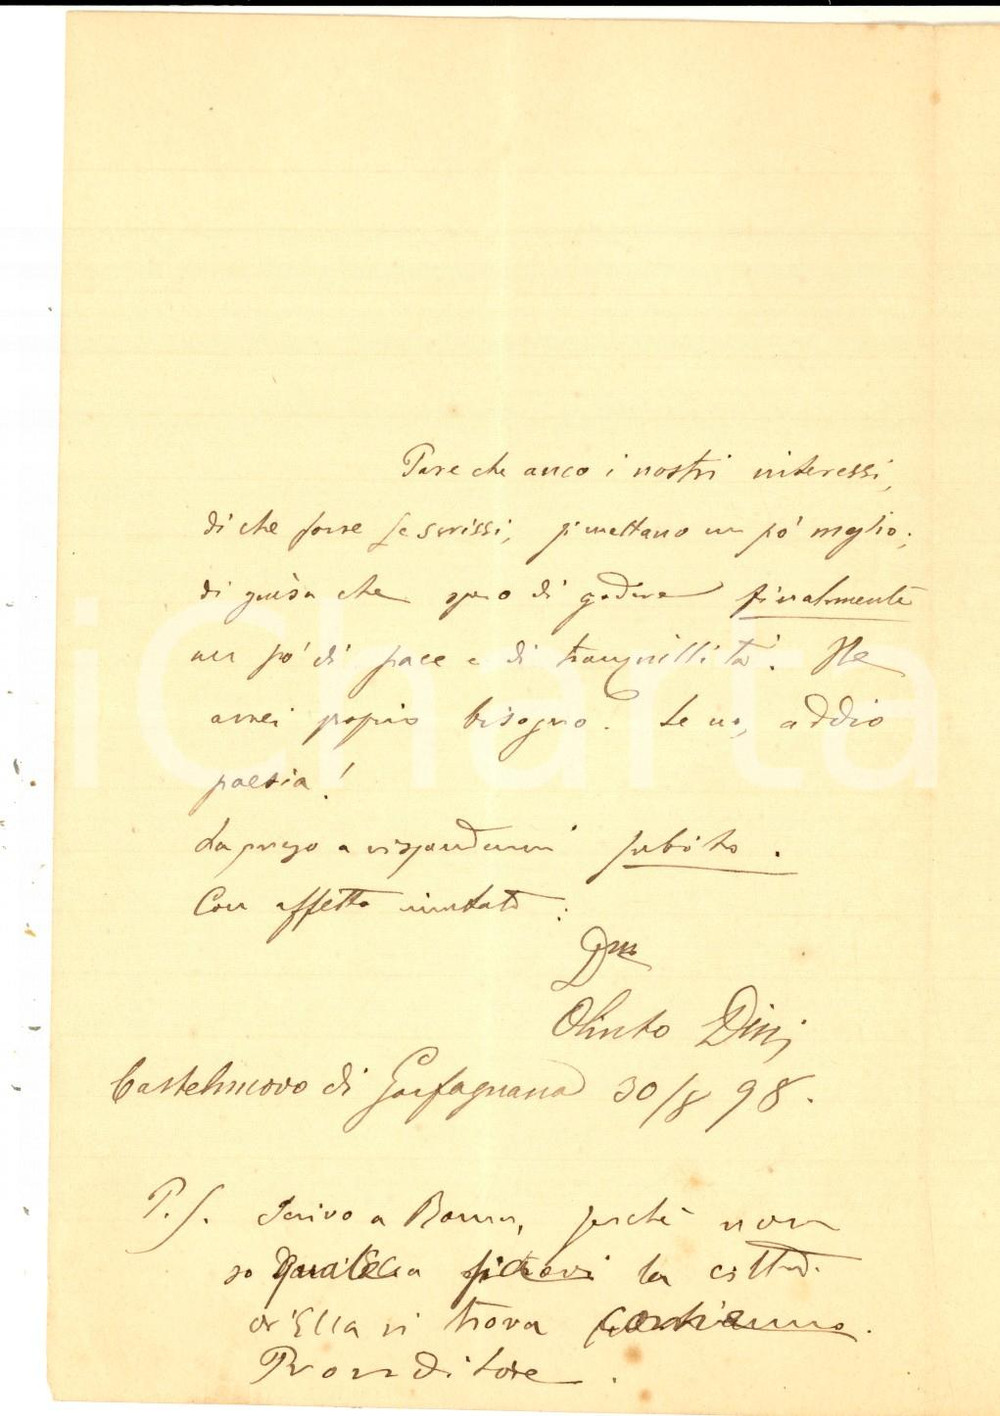 Pare che anco i nostri interessi,
di che forse Le scrissi, si mettano un po' meglio;
di guisa che spero di godere finalmente
un po' di pace e di tranquillità. Ne
avrei proprio bisogno. Se no, addio
poesia!
La prego a rispondermi subito.
Con affetto immutato:
Dmo
Olinto Dini
Castelnuovo di Garfagnana 30/8 98.
P.S. Scrivo a Roma, perchè non
so qual sia la città
ov'Ella si trova
Provveditore.
iCharta